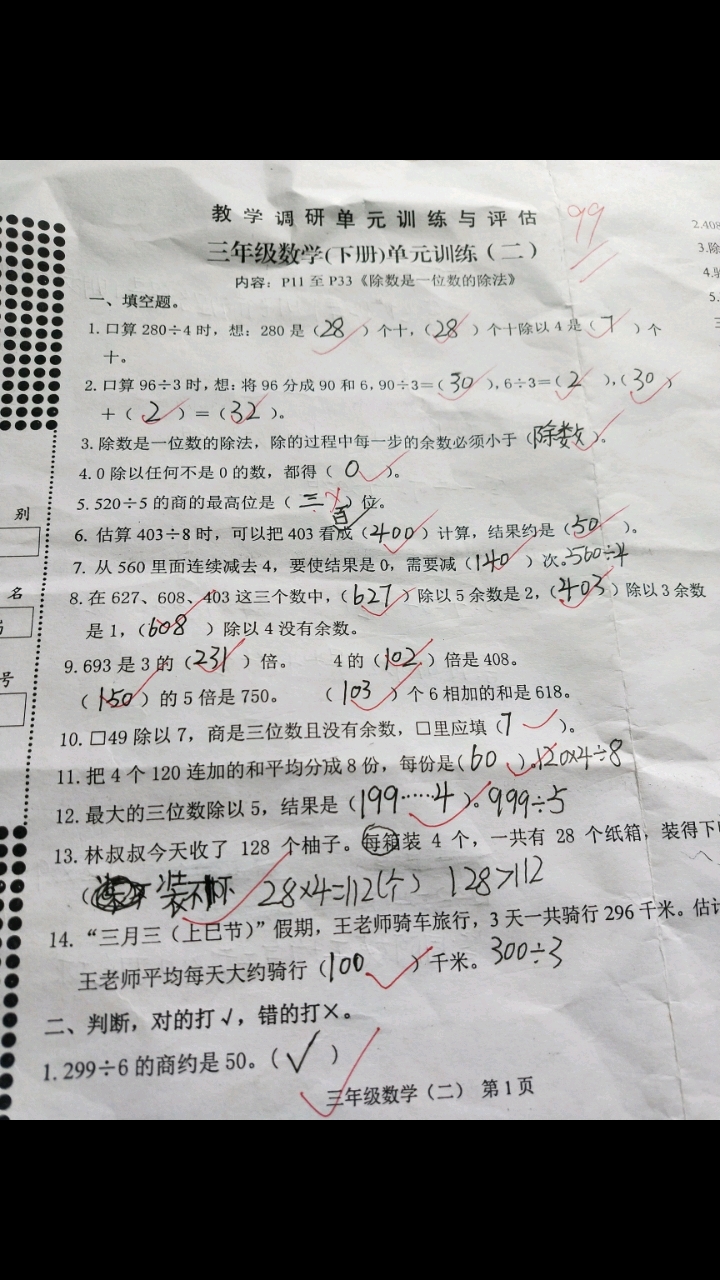 教学调研单元训练与评估
99
三年级数学(下册)单元训练(二)
内容：P11 至 P33《除数是一位数的除法》
一、填空题。
1. 口算 280÷4 时，想：280 是（28）个十，（28）个十除以 4 是（7）个
十。
2. 口算 96÷3 时，想：将 96 分成 90 和 6，90÷3=（30），6÷3=（2），（30）
+（2）=（32）。
3. 除数是一位数的除法，除的过程中每一步的余数必须小于（除数）。
4. 0 除以任何不是 0 的数，都得（0）。
5. 520÷5 的商的最高位是（三）位。
百
6. 估算 403÷8 时，可以把 403 看成（400）计算，结果约是（50）。
7. 从 560 里面连续减去 4，要使结果是 0，需要减（140）次。560÷4
8. 在 627、608、403 这三个数中，（627）除以 5 余数是 2，（403）除以 3 余数
是 1，（608）除以 4 没有余数。
9. 693 是 3 的（231）倍。 4 的（102）倍是 408。
（150）的 5 倍是 750。 （103）个 6 相加的和是 618。
10. □49 除以 7，商是三位数且没有余数，□里应填（7）。
11. 把 4 个 120 连加的和平均分成 8 份，每份是（60）。120×4÷8
12. 最大的三位数除以 5，结果是（199……4）。999÷5
13. 林叔叔今天收了 128 个柚子。每箱装 4 个，一共有 28 个纸箱，装得下
（装不下 28×4=112(个) 128>112
14. “三月三（上巳节）”假期，王老师骑车旅行，3 天一共骑行 296 千米。估计
王老师平均每天大约骑行（100）千米。300÷3
二、判断，对的打√，错的打×。
1. 299÷6 的商约是 50。（√）
三年级数学（二） 第 1 页
别
名
号
2.408
3.除
4.
5.
三